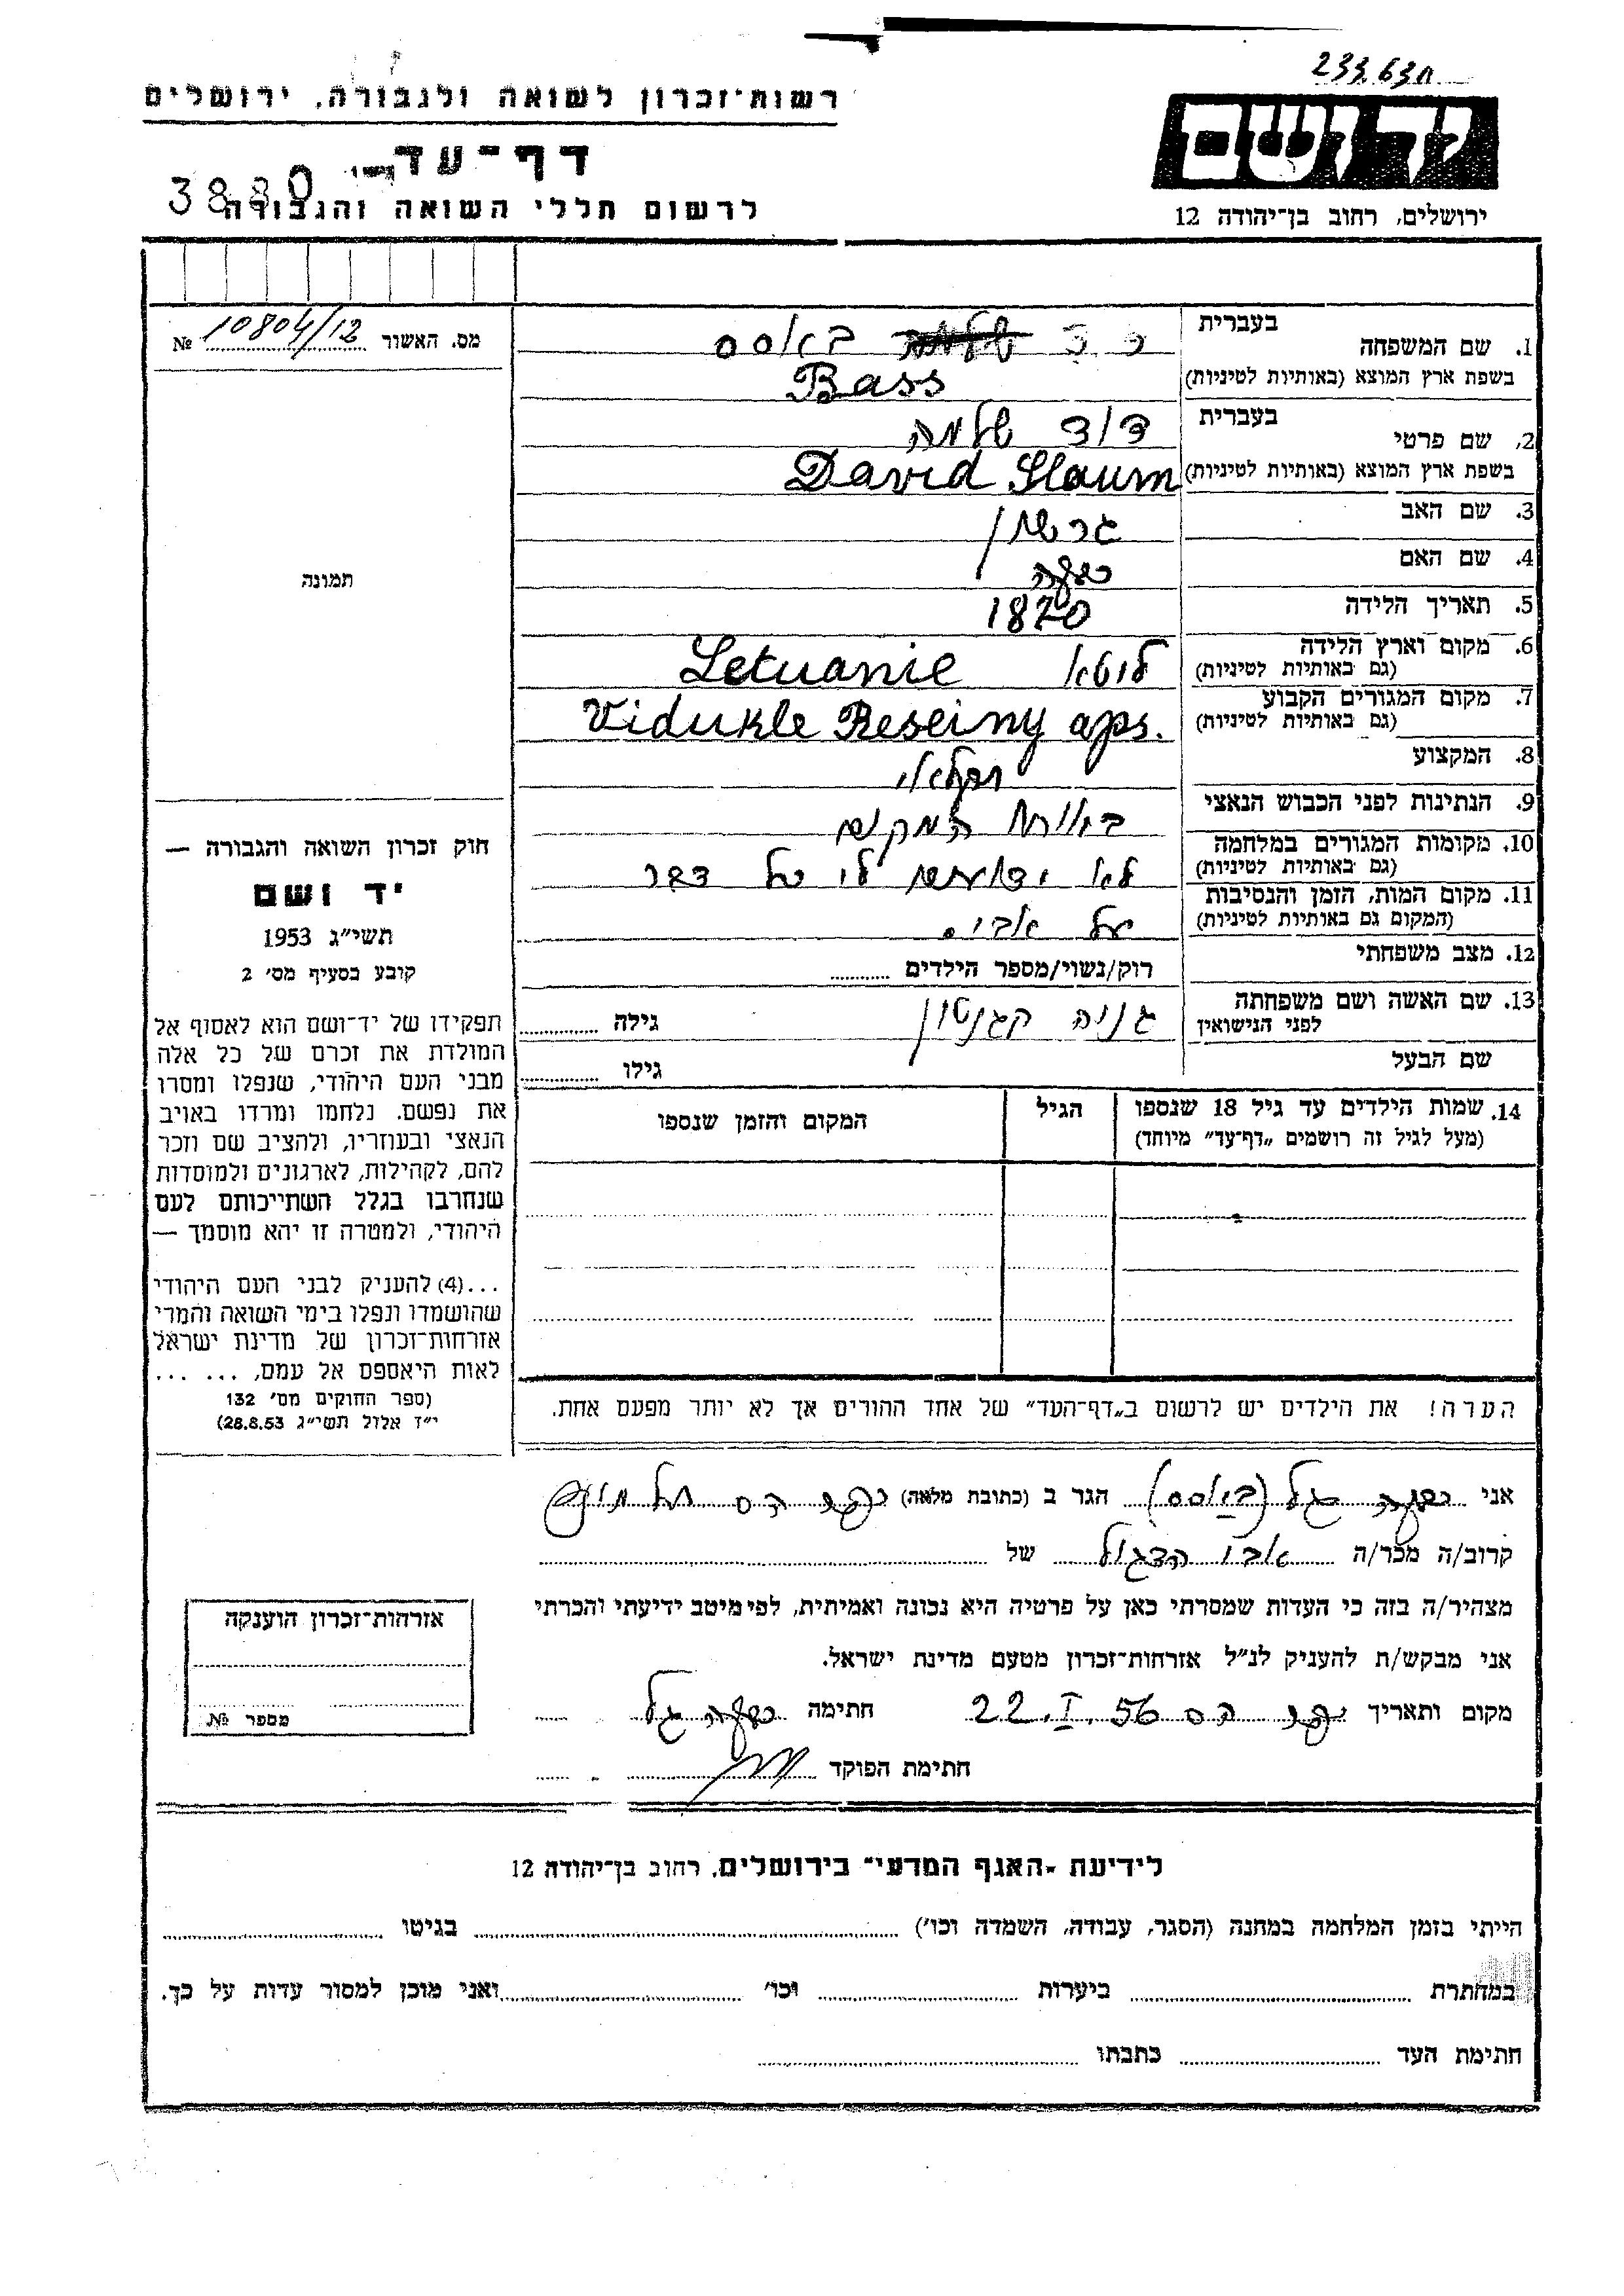 233.63
רשות-זכרון לשואה ולגבורה, ירושלים
יד ושם
דף-עד
3880
לרשום חללי השואה והגבורה
ירושלים, רחוב בן-יהודה 12
מס. האשור 10804/12 №
תמונה
חוק זכרון השואה והגבורה —
יד ושם
תשי״ג 1953
קובע בסעיף מס׳ 2
תפקידו של יד-ושם הוא לאסוף אל
המולדת את זכרם של כל אלה
מבני העם היהודי, שנפלו ומסרו
את נפשם. נלחמו ומרדו באויב
הנאצי ובעוזריו, ולהציב שם וזכר
להם, לקהילות, לארגונים ולמוסדות
שנחרבו בגלל השתייכותם לעם
היהודי, ולמטרה זו יהא מוסמך —
...(4) להעניק לבני העם היהודי
שהושמדו ונפלו בימי השואה והמרי
אזרחות-זכרון של מדינת ישראל
לאות היאספם אל עמם, ... ...
(ספר החוקים מס׳ 132
י״ז אלול תשי״ג 28.8.53)
1. שם המשפחה בעברית באסס
בשפת ארץ המוצא (באותיות לטיניות) Bass
2. שם פרטי בעברית דוד שלמה
בשפת ארץ המוצא (באותיות לטיניות) David Slaum
3. שם האב גרשון
4. שם האם
5. תאריך הלידה 1820
6. מקום וארץ הלידה (גם באותיות לטיניות) ליטא Letuanie
7. מקום המגורים הקבוע (גם באותיות לטיניות) Vidukle Reseiny aps.
8. המקצוע חקלאי
9. הנתינות לפני הכבוש הנאצי באותו המקום
10. מקומות המגורים במלחמה (גם באותיות לטיניות) לא ידוע לי כל דבר
11. מקום המות, הזמן והנסיבות (המקום גם באותיות לטיניות) על אבי.
12. מצב משפחתי רוק/נשוי/מספר הילדים
13. שם האשה ושם משפחתה לפני הנישואין גניה קגנטון גילה
שם הבעל גילו
14. שמות הילדים עד גיל 18 שנספו הגיל המקום והזמן שנספו
(מעל לגיל זה רושמים „דף-עד״ מיוחד)
הערה! את הילדים יש לרשום ב„דף-העד״ של אחד ההורים אך לא יותר מפעם אחת.
אני גל (באסס) הגר ב (כתובת מלאה)
קרוב/ה מכר/ה של
מצהיר/ה בזה כי העדות שמסרתי כאן על פרטיה היא נכונה ואמיתית, לפי מיטב ידיעתי והכרתי
אני מבקש/ת להעניק לנ״ל אזרחות-זכרון מטעם מדינת ישראל.
מקום ותאריך 22.I.56 חתימה גל
חתימת הפוקד
אזרחות-זכרון הוענקה
מספר №
לידיעת „האגף המדעי״ בירושלים, רחוב בן-יהודה 12
הייתי בזמן המלחמה במחנה (הסגר, עבודה, השמדה וכו׳) בגיטו
במחתרת ביערות וכו׳ ואני מוכן למסור עדות על כך.
חתימת העד כתבתו